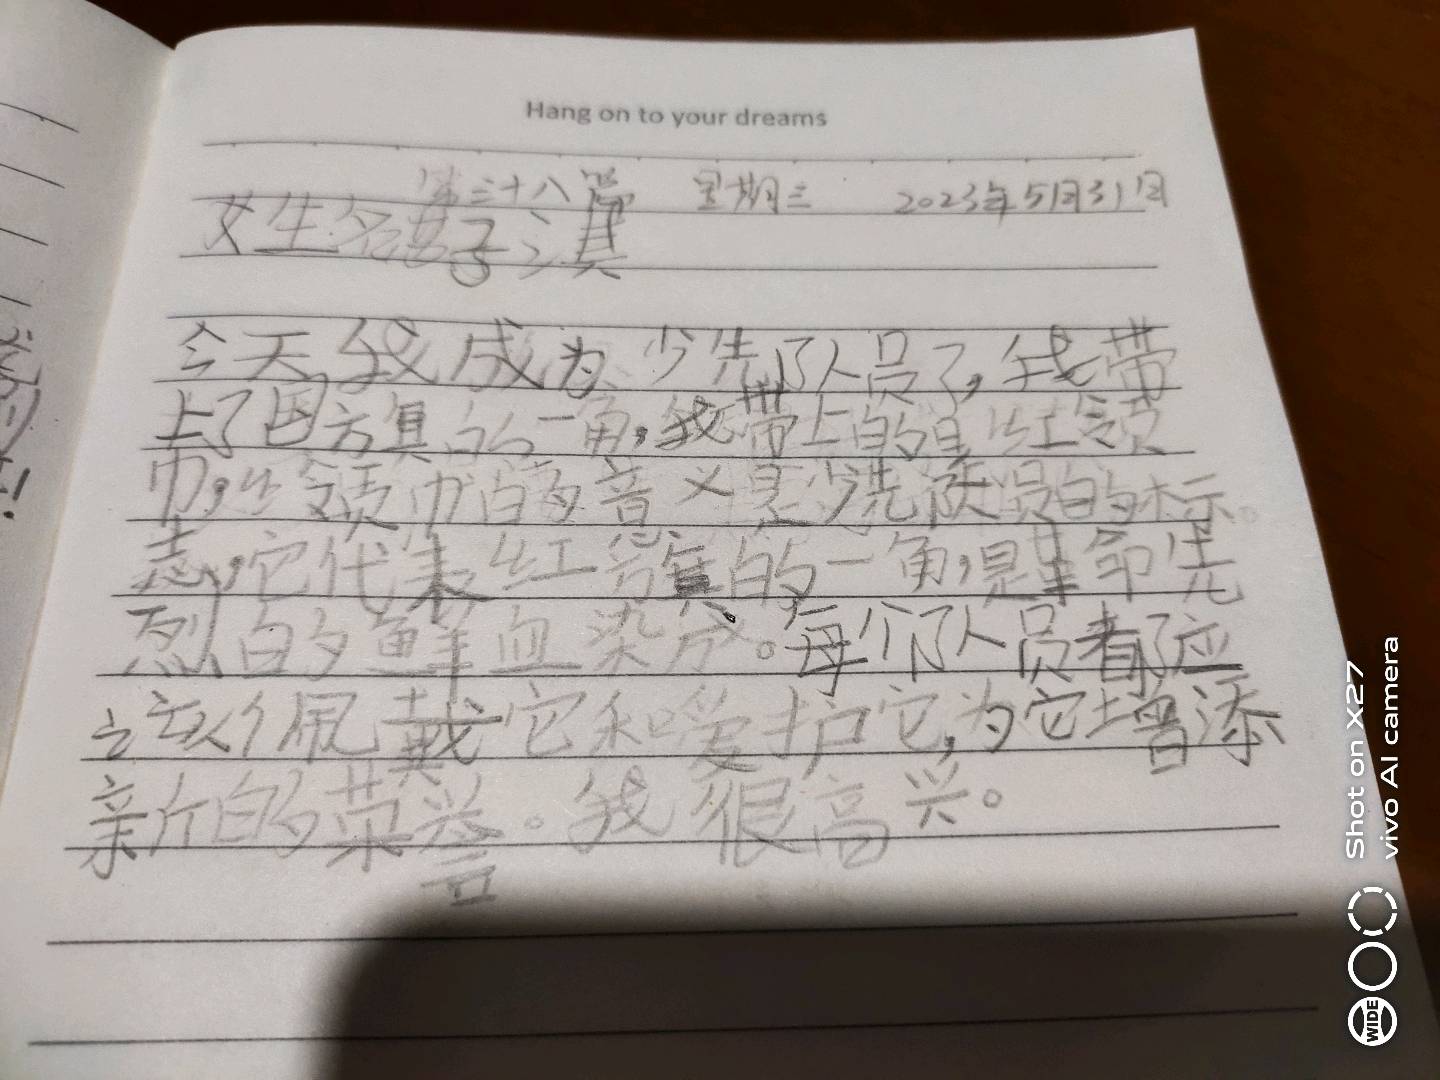 Hang on to your dreams
第三十八篇 星期三 2023年5月31日
女生名 子淇
今天,我成为少先队员了,我带
上了国方真的一角,我带上的是红领
巾,红领巾的音义是少先队员的标
志,它代表红 真的一角,是革命先
烈的鲜血染成。每个队员都应
立该佩戴它和爱护它,为它增添
新的荣誉。我很高兴。
Shot on X27
vivo AI camera
WIDE